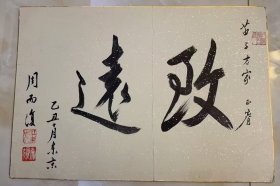 苗子方家 正層
致遠
乙丑十月 東京
周而復